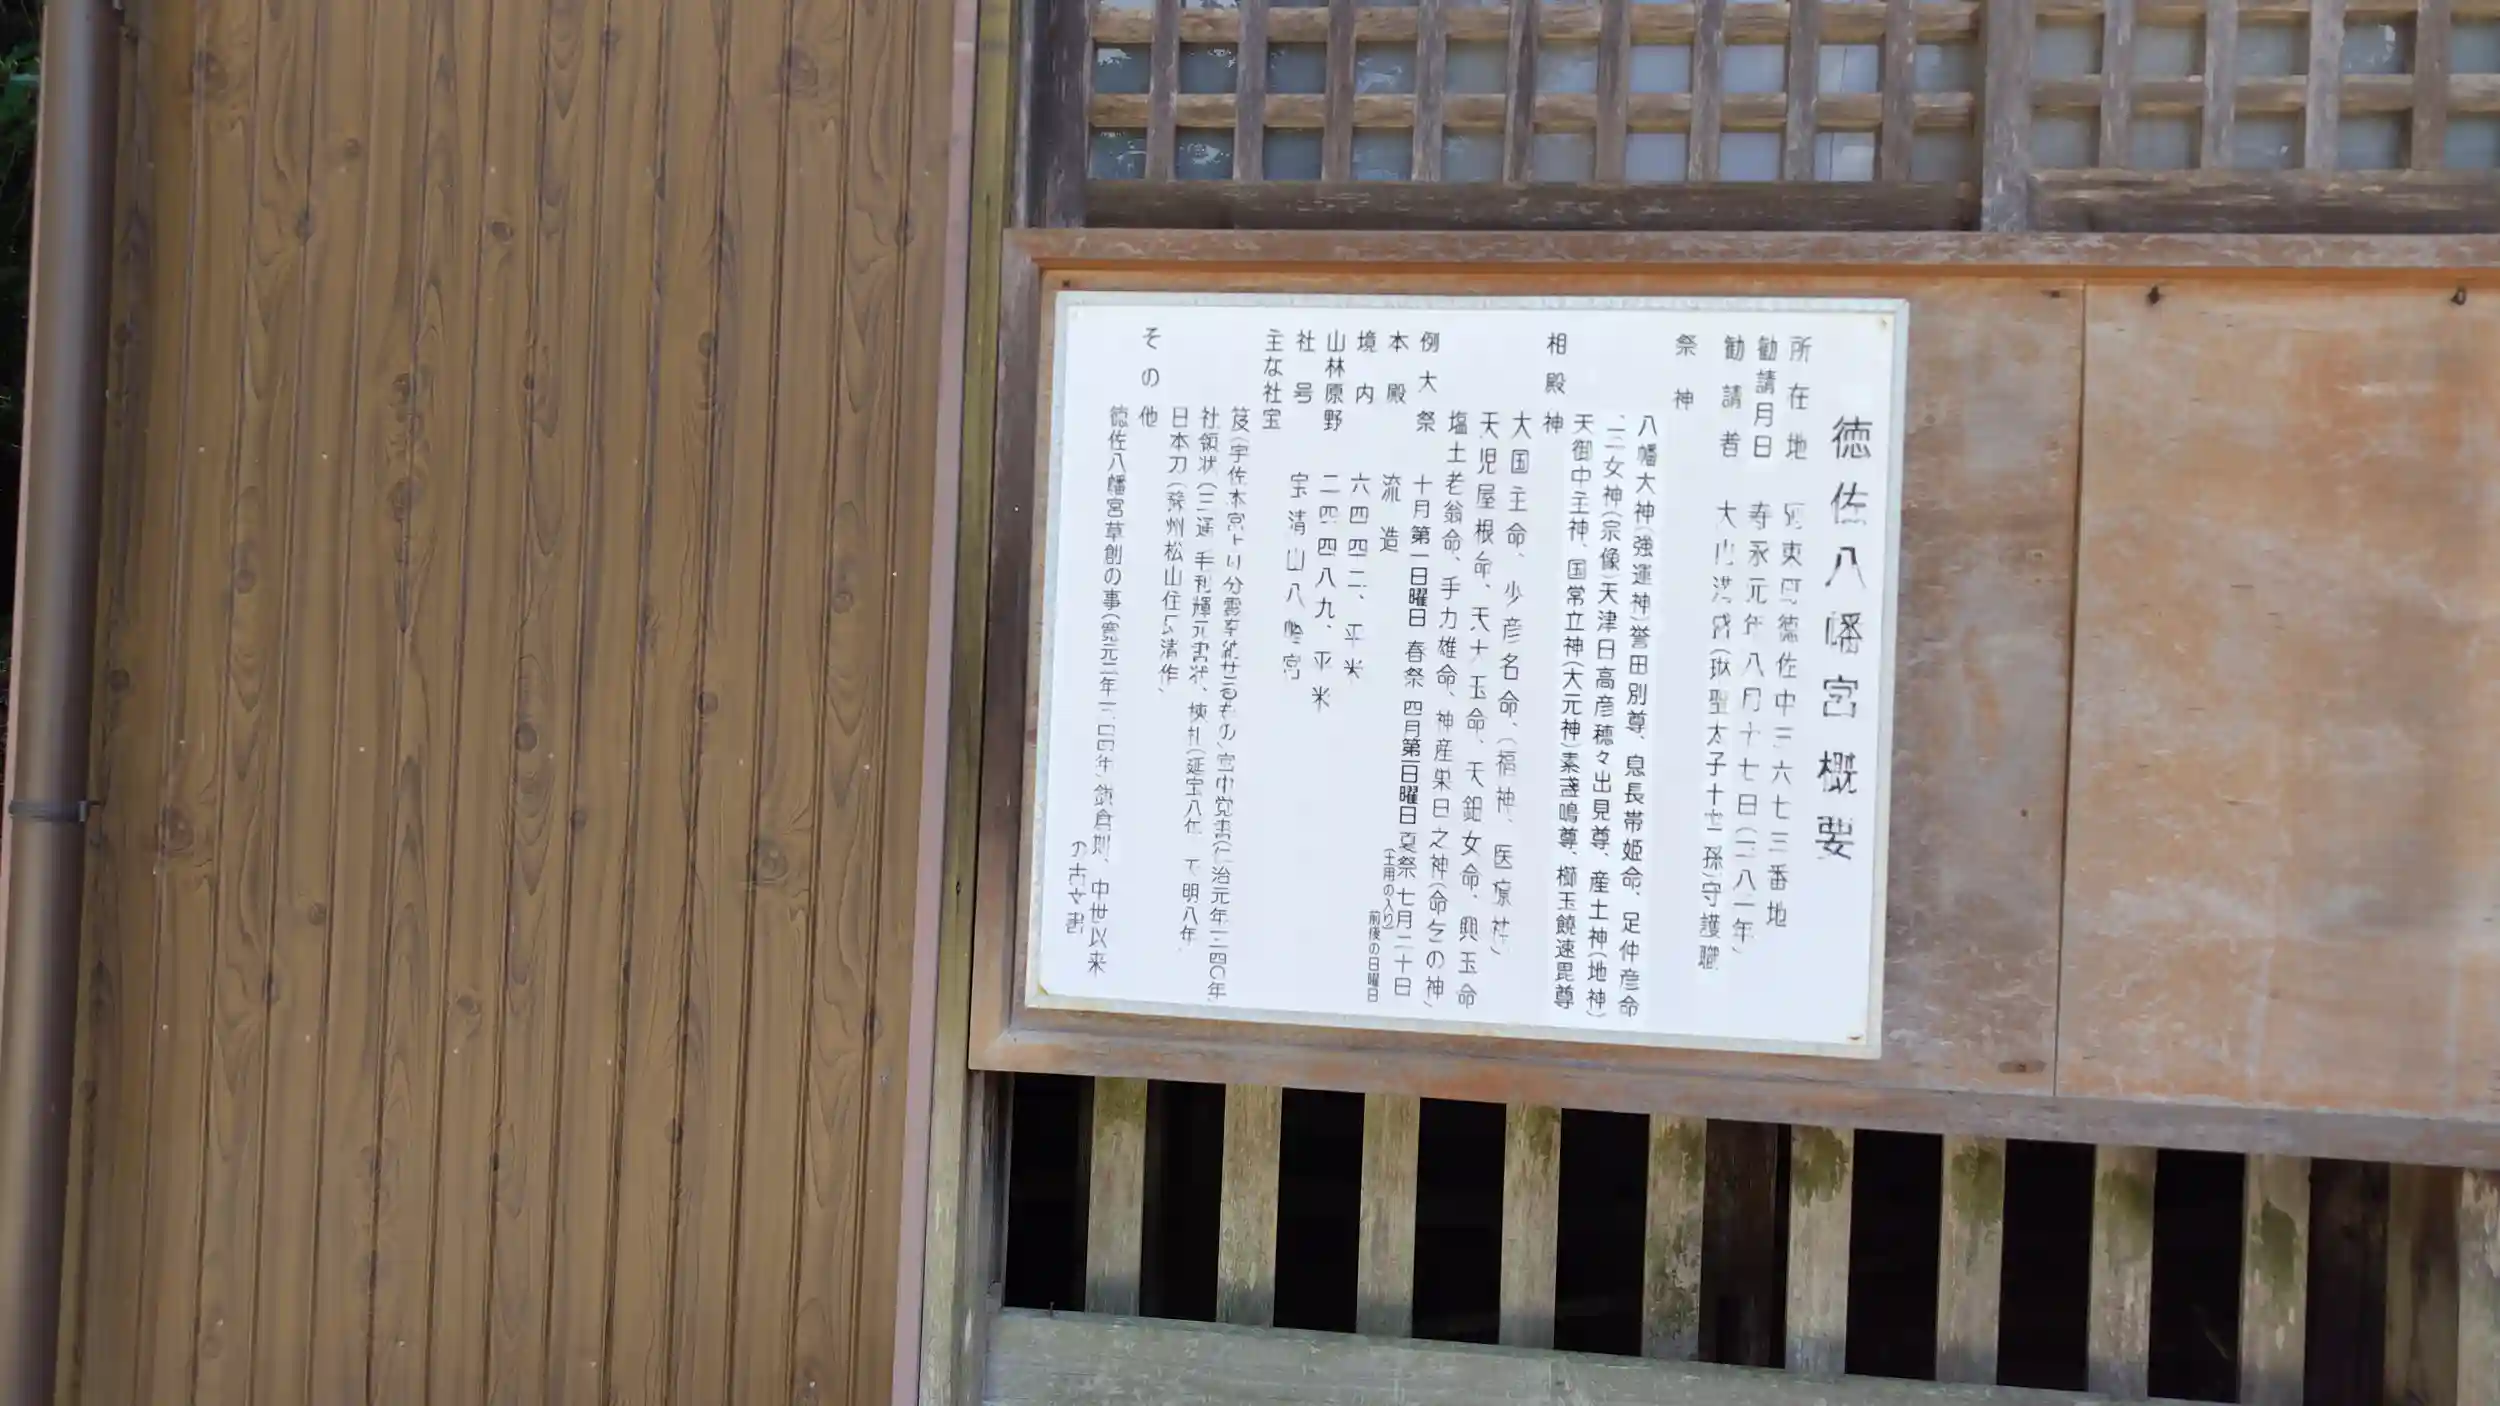 徳佐八幡宮概要
所在地 東 徳佐中三六七三番地
勧請月日 寿永元年八月十七日(一一八一年)
勧請者 大内 (琳聖太子十 孫)守護職
祭神
八幡大神(強運神)誉田別尊、息長帯姫命、足仲彦命
三女神(宗像)天津日高彦穂々出見尊、産土神(地神)
天御中主神、国常立神(大元神)素盞鳴尊、櫛玉饒速毘尊
相殿神
大国主命、少彦名命、(福神、医療神)
天児屋根命、天太玉命、天鈿女命、興玉命
塩土老翁命、手力雄命、神産巣日之神(命乞の神)
例大祭 十月第一日曜日 春祭 四月第一日曜日 夏祭 七月二十日
(土用の入り)前後の日曜日
本殿 流造
境内 六四四二、平米
山林原野 二四四八九、平米
社号 宝清山八幡宮
主な社宝
笈(宇佐本宮より分霊奉 せるもの)宮中覚書(仁治元年一二四〇年)
社領状(三通 毛利輝元書状、棟札(延宝八年 天明八年)
日本刀( 州松山住 清作)
その他
徳佐八幡宮草創の事(寛元二年 鎌倉 、中世以来
の古文書